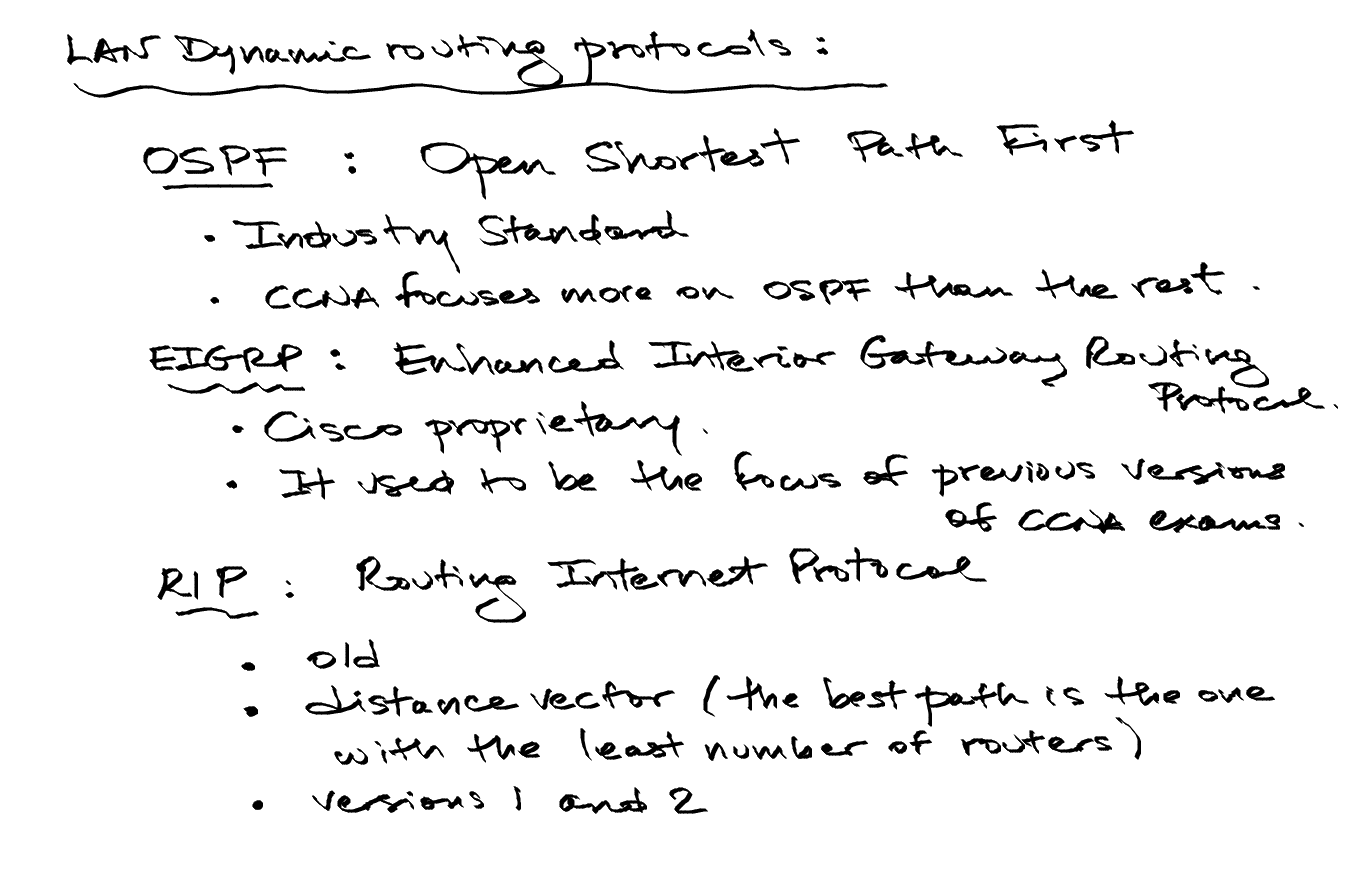 LAN Dynamic routing protocols :
OSPF : Open Shortest Path First
• Industry Standard
• CCNA focuses more on OSPF than the rest .
EIGRP : Enhanced Interior Gateway Routing
Protocol .
• Cisco proprietary .
• It used to be the focus of previous versions
of CCNA exams .
RIP : Routing Internet Protocol
• old
• distance vector ( the best path is the one
with the least number of routers )
• versions 1 and 2